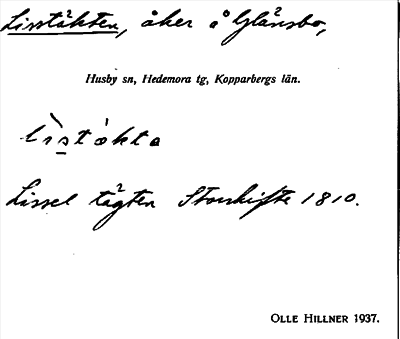 Lisstäkten, åker å Glänsbo,
Husby sn, Hedemora tg, Kopparbergs län.
lìstákta
Lissel tägten Storskifte 1810.
OLLE HILLNER 1937.